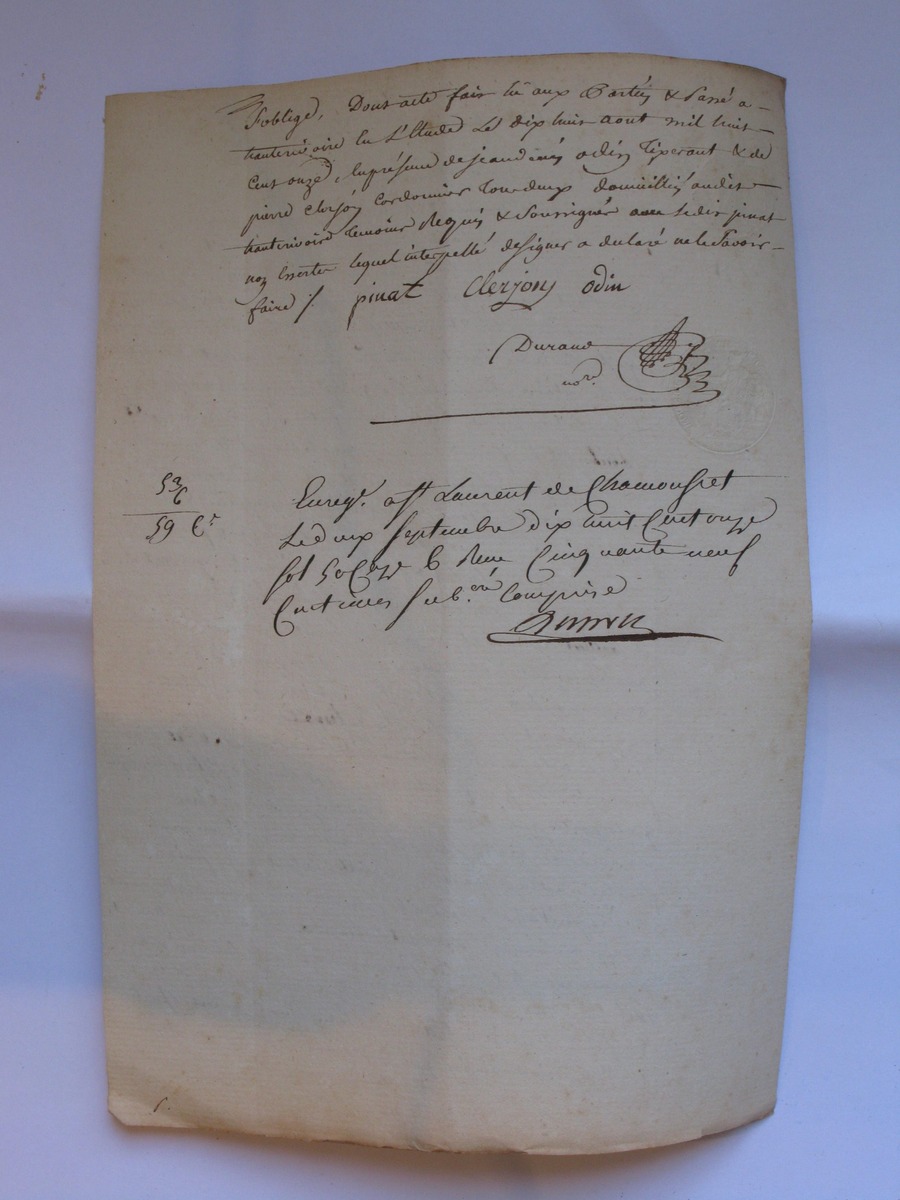 s'oblige, Dont acte fait lu aux Parties & Passé a
hauterivoire en L'Etude Le dix huit aout mil huit
Cent onze, En présence de jean denis odin Tixerant & de
pierre Clerjon Cordonnier tous deux domicilliés audit
hauterivoire temoins Requis & Soussignés avec Ledit pinat
non lequel interpellé de signer a declaré ne le Savoir
faire ./. pinat Clerjon odin
Durand
nore.
53
6
59 Cs
Enregé. a St Laurent de Chamousset
Le deux Septembre dix huit Cent onze
fol 50 Cinquante neuf
Centimes subon. Comprise